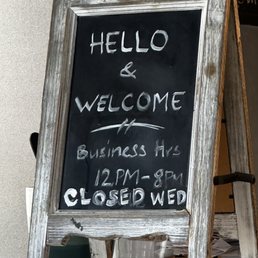 HELLO
&
WELCOME
Business Hrs
12PM-8PM
CLOSED WED